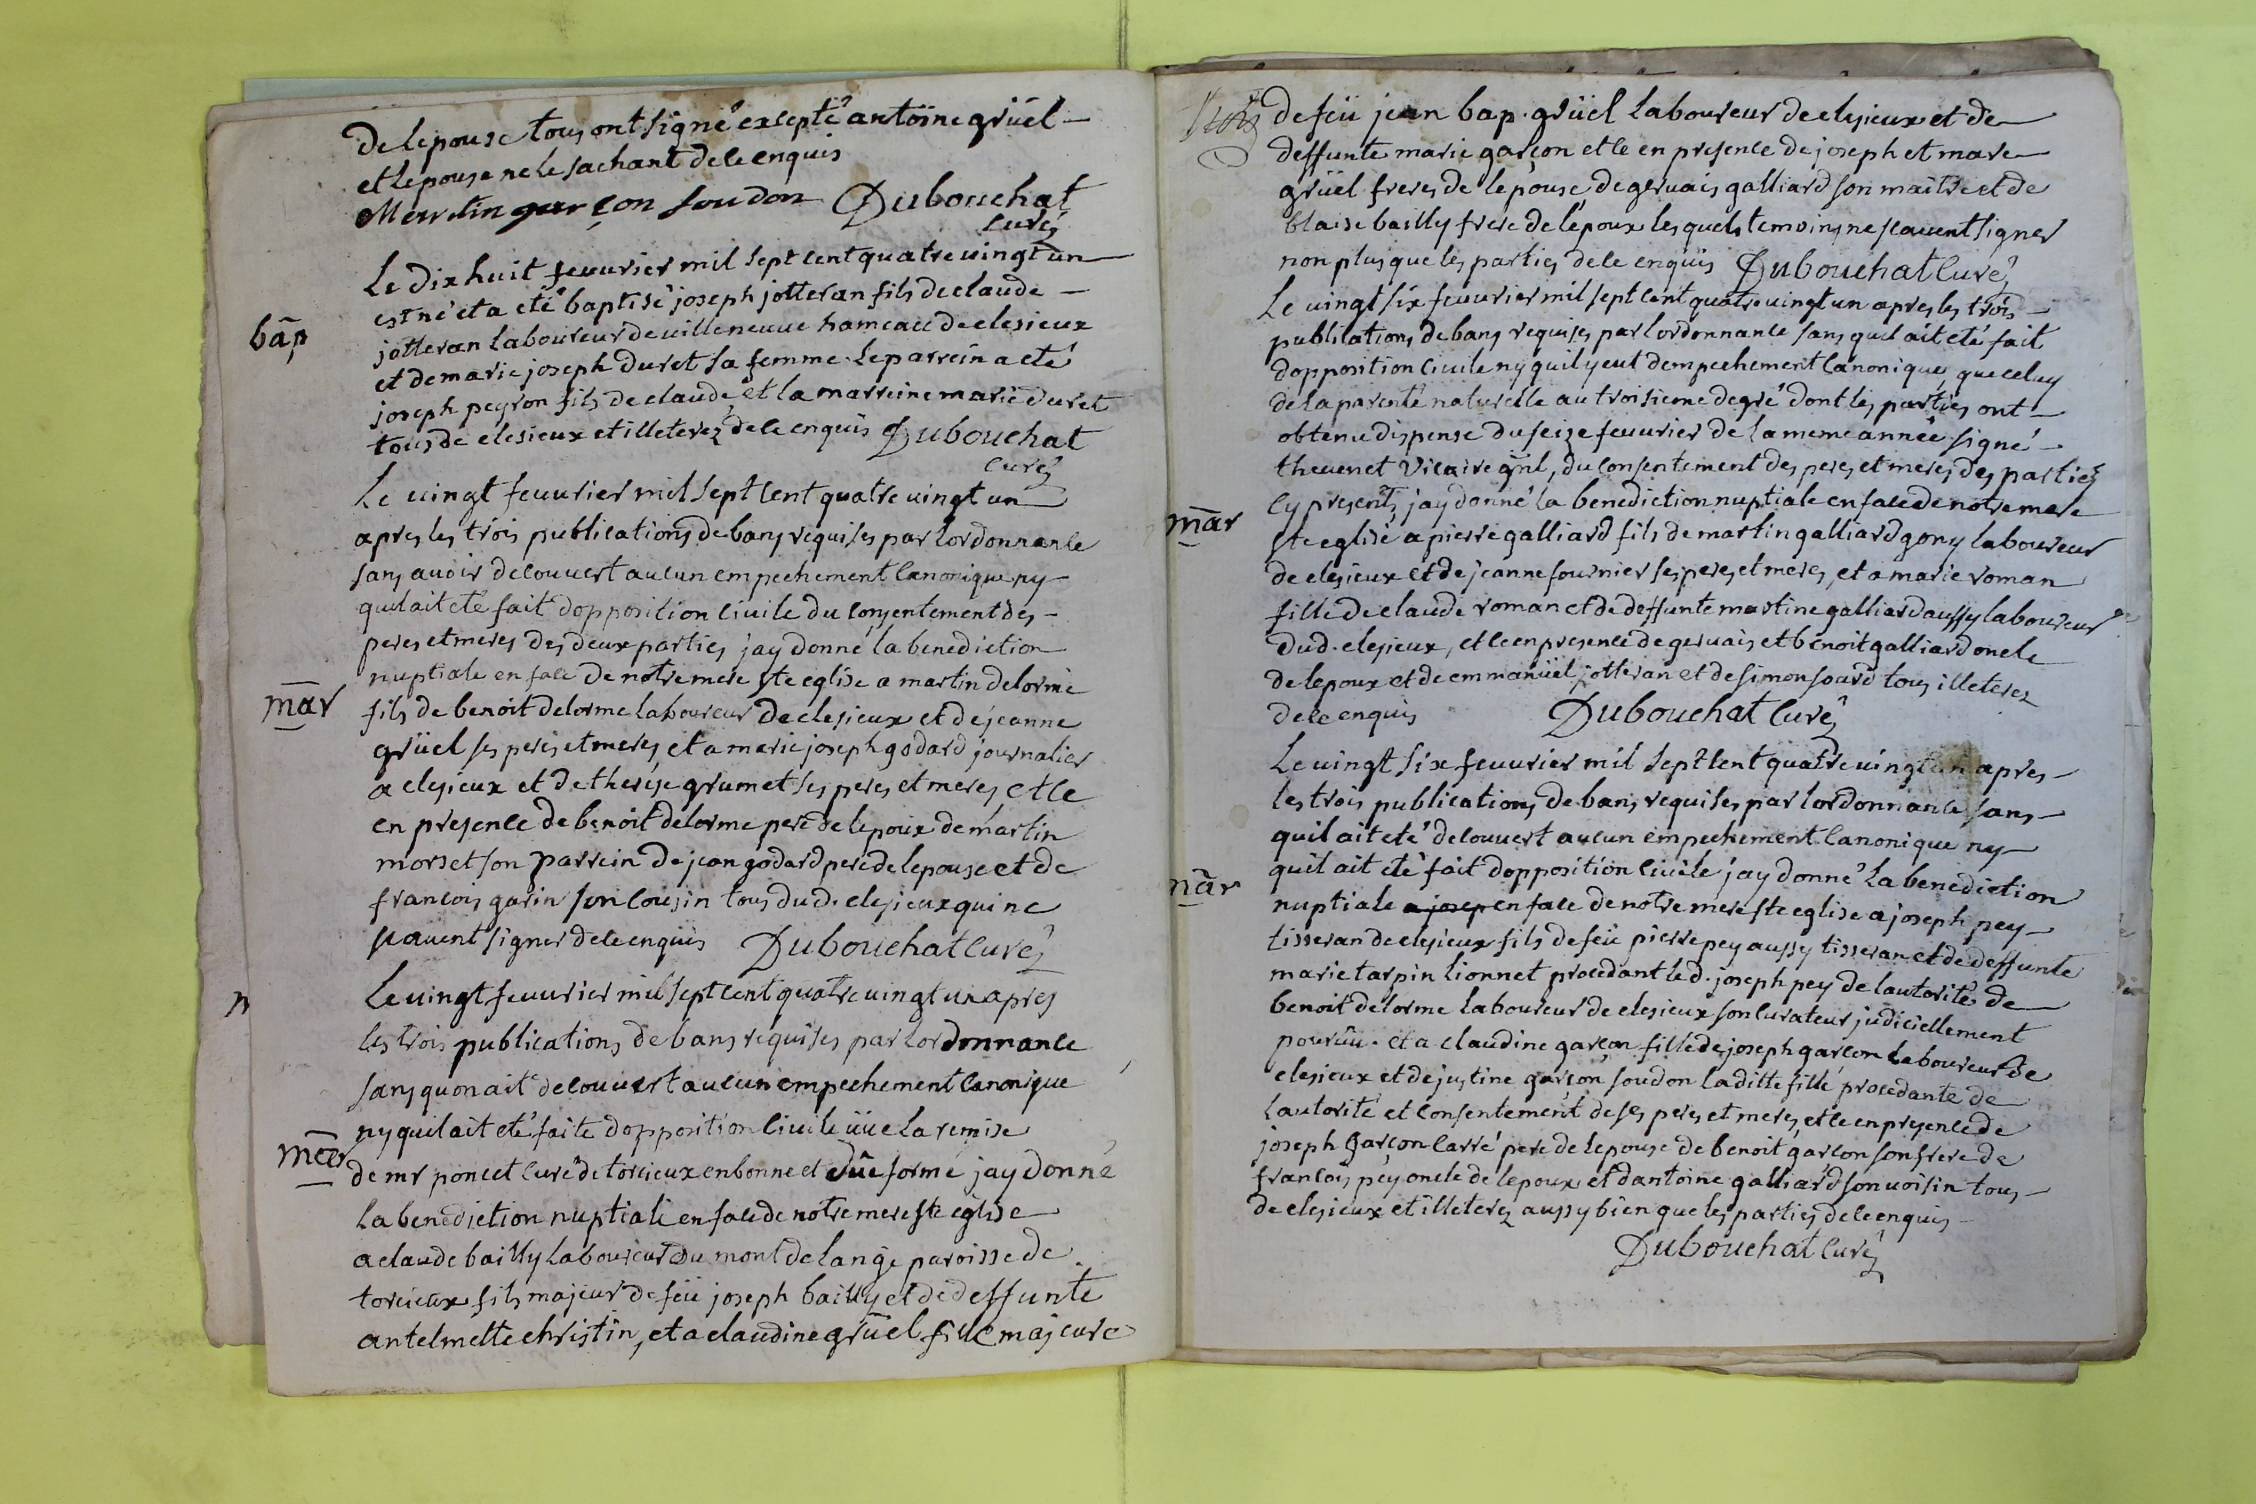 de lepouse tous ont signé excepté antoine grüel
et lepouse ne le sachant de ce enquis
Merlin garçon soudon Dubouchat
curé
bap
Le dix huit feuurier mil sept cent quatre uingt un
est né et a eté baptisé joseph jotteran fils de claude
jotteran laboureur de uilleneuue hameau de clesieux
et de marie joseph duret sa femme. le parrein a eté
joseph peyron fils de claude, et la marreine marie duret
tous de clesieux et illeterez de ce enquis Dubouchat
curé
Le uingt feuurier mil sept cent quatre uingt un
apres les trois publications de bans requises par lordonnance
sans auoir decouuert aucun empechement canonique ny
quil ait eté fait dopposition ciuile du consentement des
peres et meres des deux parties jay donné la benediction
nuptiale en face de notre mere ste eglise a martin delorme
mar
fils de benoit delorme laboureur de clesieux et de jeanne
grüel ses peres et meres, et a marie joseph godard journalier
a clesieux et de therese grumet ses peres et meres, et ce
en presence de benoit delorme pere de lepoux de martin
morset son parrein de jean godard pere de lepouse et de
francois garin son cousin tous dud. clesieux qui ne
scauent signer de ce enquis Dubouchat curé
Le uingt feuurier mil sept cent quatre uingt un apres
les trois publications de bans requises par lordonnance
sans quon ait decouuert aucun empechement canonique
ny quil ait eté faite dopposition ciuile uüe la remise
mar
de mr poncet curé de torcieux en bonne et düe forme jay donné
la benediction nuptiale en face de notre mere ste eglise
a claude bailly laboureur du mont de lange paroisse de
torcieux fils majeur de feü joseph bailly et de deffunte
antelmette christin, et a claudine grüel fille majeure
de feü jean bap. grüel laboureur de clesieux et de
deffunte marie garçon et ce en presence de joseph et marc
grüel freres de lepouse, de geruais galliard son maitre et de
blaise bailly frere de lépoux les quels temoins ne scauent signer
non plus que les parties de ce enquis Dubouchat curé
Le uingt six feuurier mil sept cent quatre uingt un apres les trois
publications de bans requises par lordonnance sans quil ait eté fait
dopposition ciuile ny quil y eut dempechement canonique, que celuy
de la parenté naturelle au troisieme degré dont les parties ont
obtenu dispense du seise feuurier de la meme année signé
theuenet Vicaire gnl, du consentement des peres et meres des parties
cy presents, jay donné la benediction nuptiale en face de notre mere
mar
ste eglise a pierre galliard fils de martin galliard gony laboureur
de clesieux et de jeanne fournier ses peres et meres, et a marie roman
fille de claude roman et de deffunte martine galliard aussy laboureur
dud. clesieux, et ce en presence de geruais et benoit galliard oncle
de lepoux et de emmanüel jotteran et de simon soard tous illeterez
de ce enquis Dubouchat curé
Le uingt six feuurier mil sept cent quatre uingt un apres
les trois publications de bans requises par lordonnance sans
quil ait eté decouuert aucun empechement canonique ny
quil ait eté fait dopposition ciuile jay donné la benediction
mar
nuptiale a josep en face de notre mere ste eglise a joseph pey
tisseran de clesieux fils de feü pierre pey aussy tisseran et de deffunte
marie tarpin lionnet procedant led. joseph pey de lautorité de
benoit delorme laboureur de clesieux son curateur judiciellement
pouruu. et a claudine garçon fille de joseph garçon laboureur de
clesieux et de justine garçon soudon laditte fille procedante de
lautorité et consentement de ses peres et meres, et ce en presence de
joseph garçon carré pere de lepouse de benoit garçon son frere de
francois pey oncle de lepoux et dantoine galliard son uoisin tous
de clesieux et illeterez aussy bien que les parties de ce enquis
Dubouchat curé